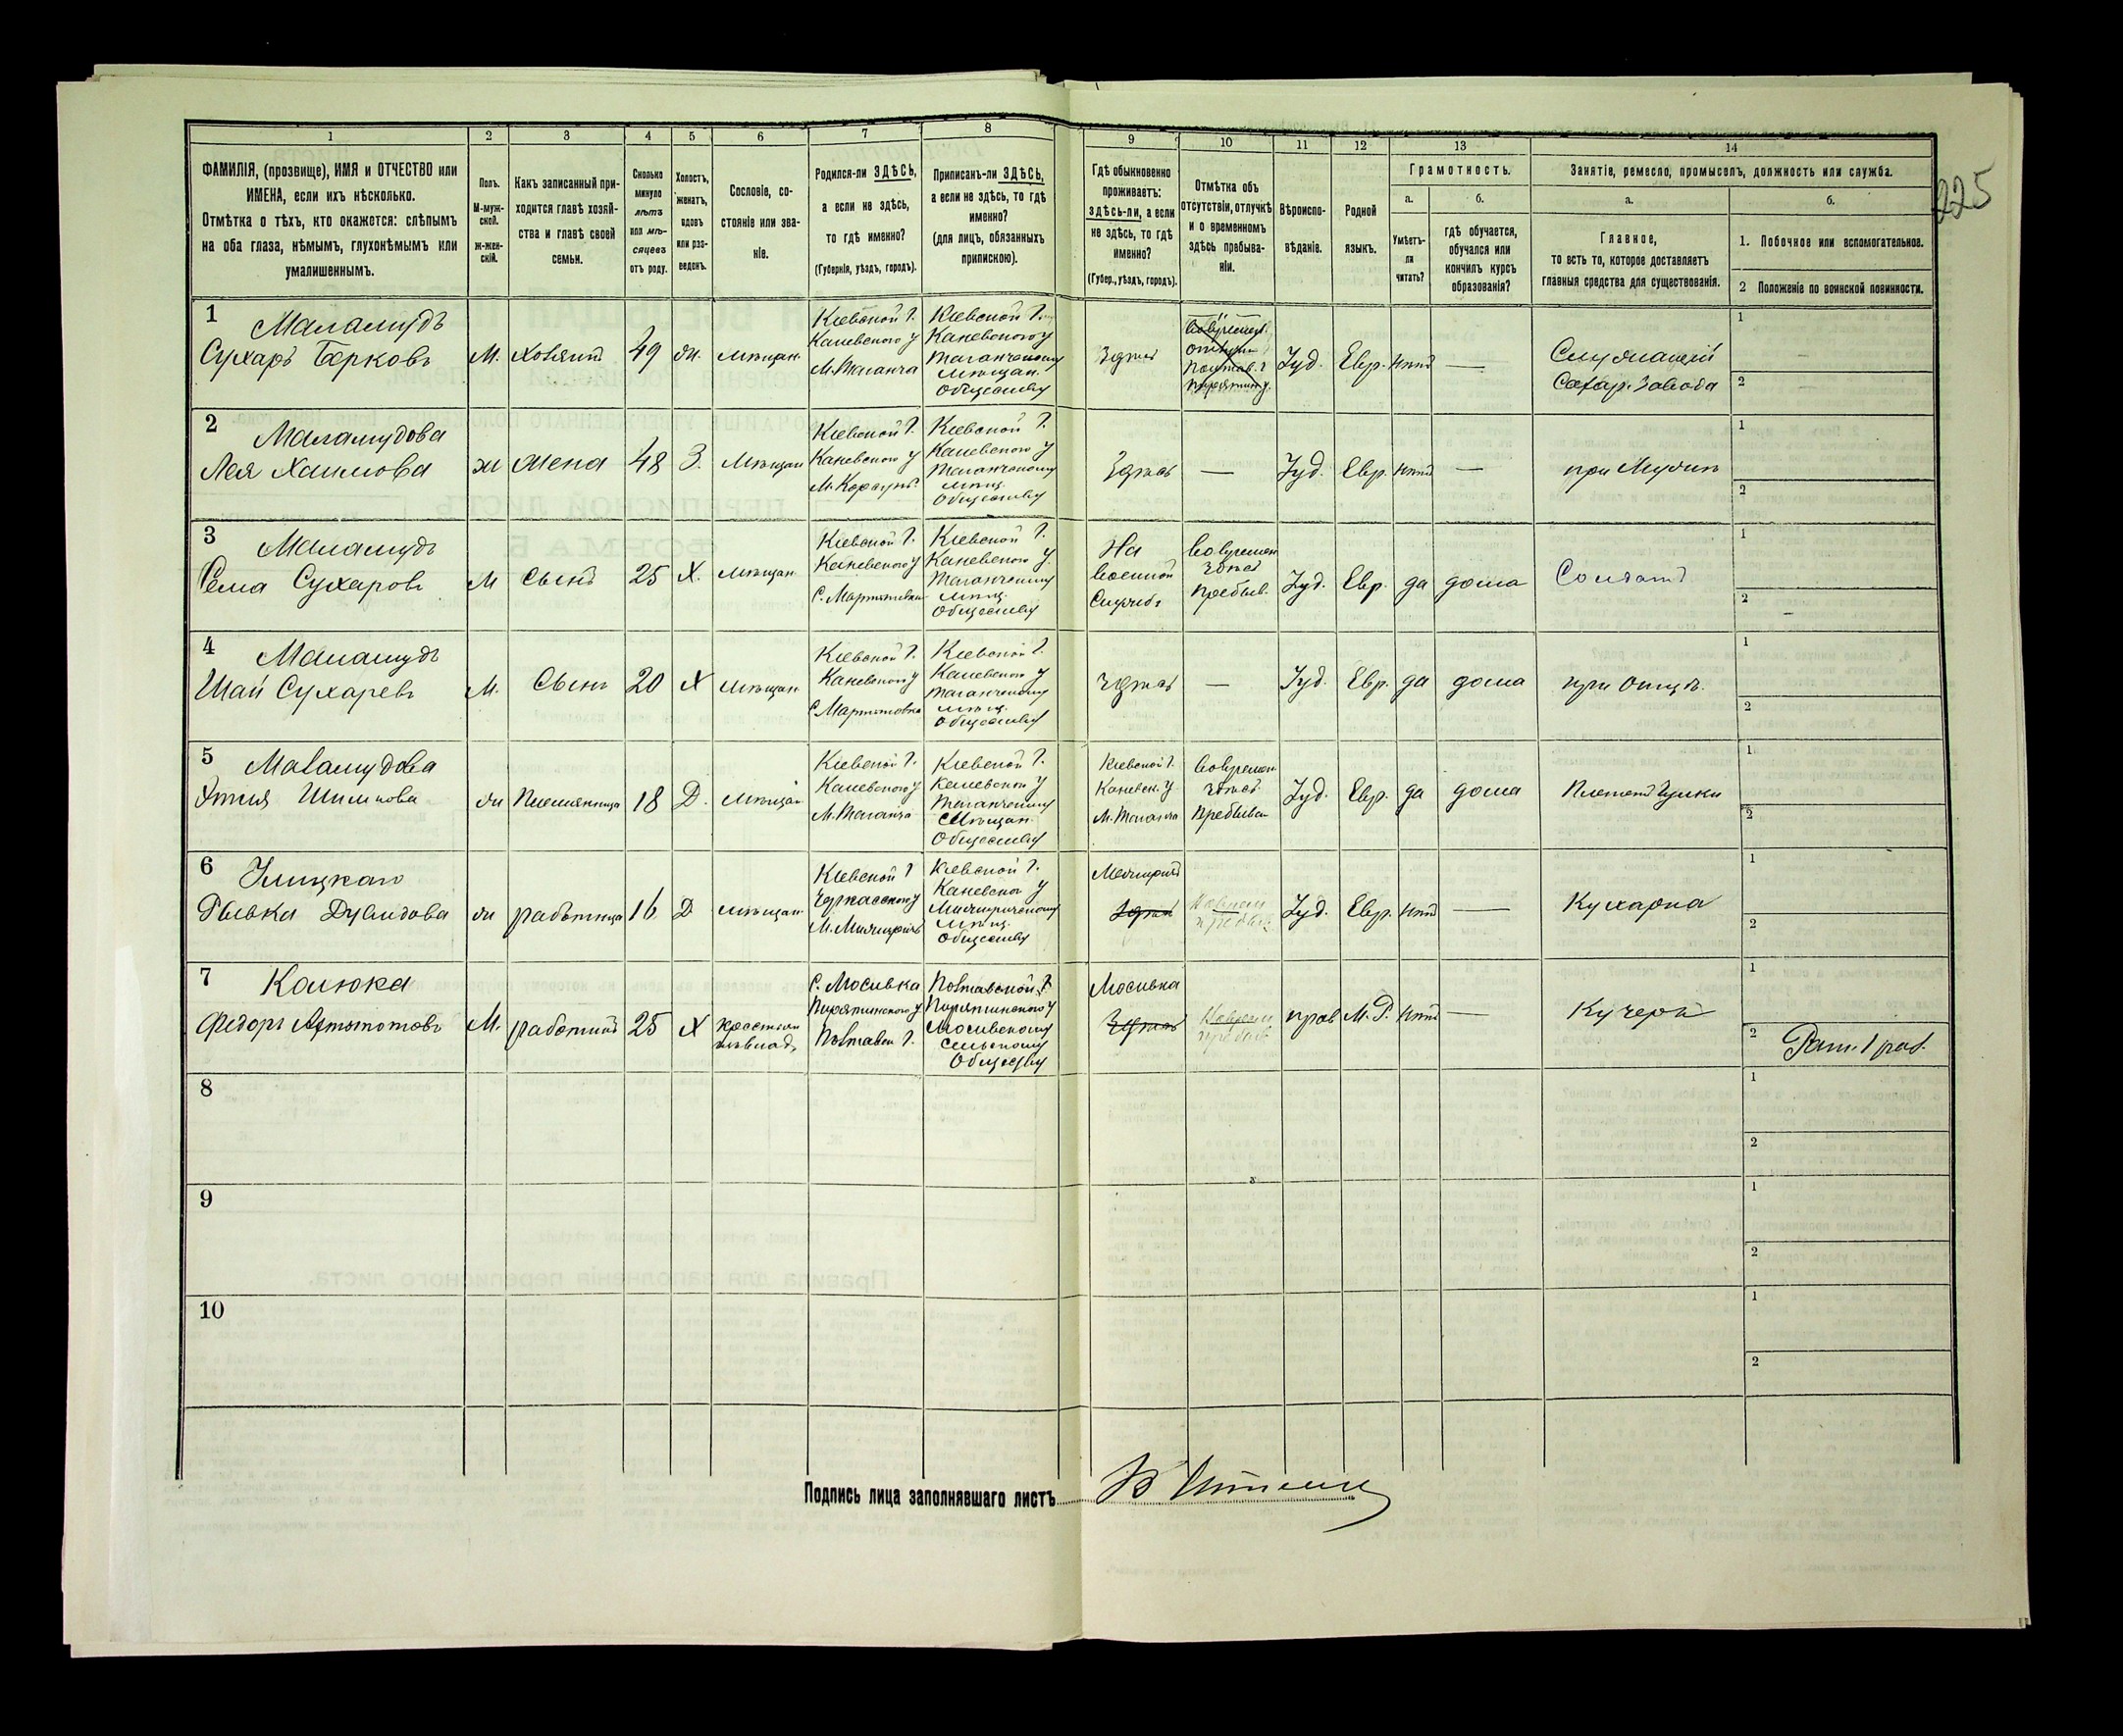 1 2 3 4 5 6 7 8 9 10 11 12 13 14
ФАМИЛІЯ, (прозвище), ИМЯ и ОТЧЕСТВО или
ИМЕНА, если ихъ нѣсколько.
Отмѣтка о тѣхъ, кто окажется: слѣпымъ
на оба глаза, нѣмымъ, глухонѣмымъ или
умалишеннымъ.
Полъ.
М-муж-
ской.
ж-жен-
скій.
Какъ записанный при-
ходится главѣ хозяй-
ства и главѣ своей
семьи.
Сколько
минуло
лѣтъ
или мѣ-
сяцевъ
отъ роду.
Холостъ,
женатъ,
вдовъ
или раз-
веденъ.
Сословіе, со-
стояніе или зва-
ніе.
Родился-ли ЗДѢСЬ,
а если не здѣсь,
то гдѣ именно?
(Губернія, уѣздъ, городъ).
Приписанъ-ли ЗДѢСЬ,
а если не здѣсь, то гдѣ
именно?
(для лицъ, обязанныхъ
припискою).
Гдѣ обыкновенно
проживаетъ:
здѣсь-ли, а если
не здѣсь, то гдѣ
именно?
(Губер., уѣздъ, городъ).
Отмѣтка объ
отсутствіи, отлучкѣ
и о временномъ
здѣсь пребыва-
ніи.
Вѣроиспо-
вѣданіе.
Родной
языкъ.
Грамотность.
а.
Умѣетъ-
ли
читать?
б.
гдѣ обучается,
обучался или
кончилъ курсъ
образованія?
Занятіе, ремесло, промыселъ, должность или служба.
а.
Главное,
то есть то, которое доставляетъ
главныя средства для существованія.
б.
1. Побочное или вспомогательное.
2 Положеніе по воинской повинности.
225
1
Маламудъ
Сухаръ Берковъ
М.
хозяинъ
49
ж.
мѣщан.
Кіевской г.
Каневского у
М. Таганча
Кіевской г.
Каневского у
Таганчскому
мѣщан.
обществу
здѣсь
Іуд.
Евр.
нѣтъ
—
Служащій
Сахар. завода
1
2
2
Маламудова
Лея Хаимова
ж
жена
48
З.
мѣщан
Кіевской г.
Каневского у
М. Корсунь
Кіевской г.
Каневского у
Таганчскому
мѣщ.
обществу
здѣсь
—
Іуд.
Евр.
нѣтъ
—
при мужѣ
1
2
3
Маламудъ
Сухаровъ
М
Сынъ
25
Х.
мѣщан
Кіевской г.
Каневского у
Кіевской г.
Каневского у.
Таганчскому
мѣщ.
обществу
На
военной
службѣ
временно
здѣсь
пребыв.
Іуд.
Евр.
да
дома
Солдатъ
1
2
4
Маламудъ
Шай Сухаревъ
М.
Сынъ
20
Х
мѣщан
Кіевской г.
Каневского у
Кіевской г.
Каневского у
Таганчскому
мѣщ.
обществу
здѣсь
—
Іуд.
Евр.
да
дома
при отцѣ.
1
2
5
Маламудова
ж
Племянница
18
Д.
мѣщан
Кіевской г.
Каневского у
М. Таганча
Кіевской г.
Каневского у
Таганчскому
мѣщан.
обществу
Кіевской г.
Каневск. у
М. Таганча
временно
здѣсь
пребыван
Іуд.
Евр.
да
дома
1
2
6
Рывка Дувидова
ж
работница
16
Д
мѣщан
Кіевской г
Черкасского у
Кіевской г.
Каневского у
мѣщ.
обществу
здѣсь
Іуд.
Евр.
нѣтъ
—
Кухарка
1
2
7
Калюка
Федоръ
М.
работникъ
25
Х
С. Мосивка
Пирятинского у
Полтавск г.
Полтавской г.
Пирятинского у
Мосивскому
сельскому
обществу
Мосивка
здѣсь
прав
М.Р.
нѣтъ
—
Кучеръ
1
2
Рат. 1 раз.
8
1
2
9
1
2
10
1
2
Подпись лица заполнявшаго листъ